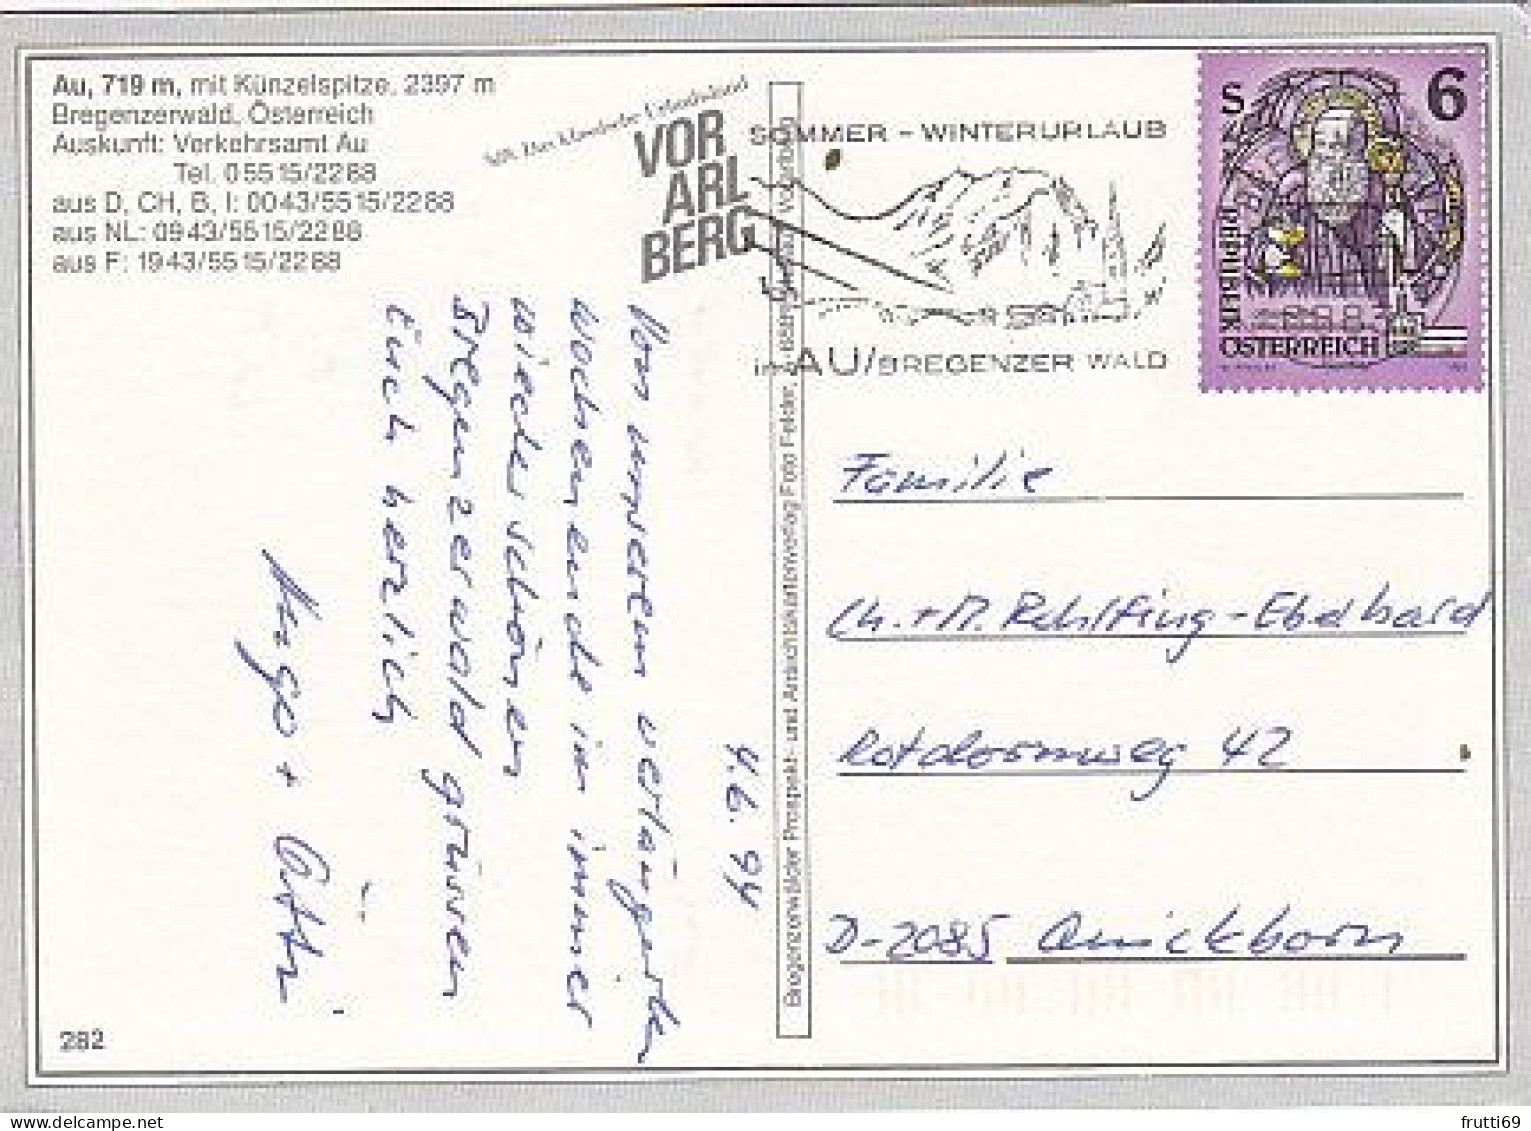 Au, 719 m, mit Künzelspitze, 2397 m
Bregenzerwald, Österreich
Auskunft: Verkehrsamt Au
Tel. 05515/2288
aus D, CH, B, I: 0043/5515/2288
aus NL: 0943/5515/2288
aus F: 1943/5515/2288
VOR
ARL
BERG
SOMMER - WINTERURLAUB
in AU/BREGENZER WALD
S 6
REPUBLIK
ÖSTERREICH
4.6.94
Vom unserem verlängerten
Wochenende im immer
wieder schönen
Bregenzerwald grüssen
Euch herzlich
Ingo +
Bregenzerwälder Prospekt- und Ansichtskartenverlag Foto Felder,
Familie
Ch. + M. Rehlfing-Eberhard
Rotdornweg 42
D-2085 Quickborn
282
frutti69